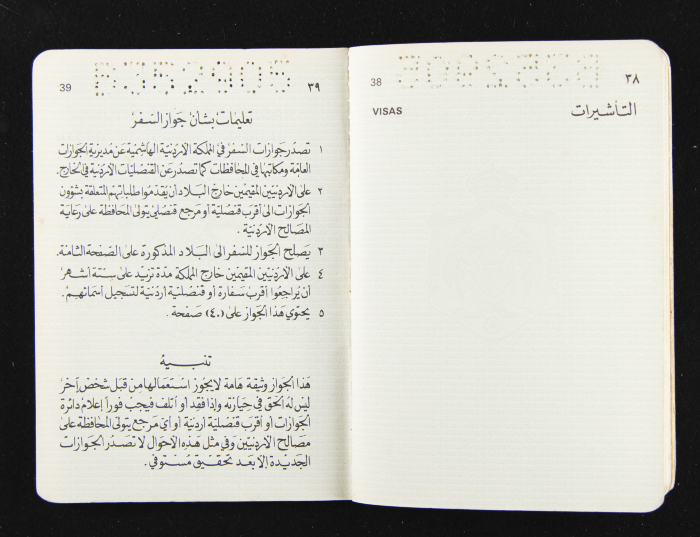 38
٣٨
VISAS
التأشيرات
39
٣٩
تعليمات بشأن جواز السفر
١ تصدر جوازات السفر في المملكة الاردنية الهاشمية عن مديرية الجوازات
العامة ومكاتبها في المحافظات كما تصدر عن القنصليات الاردنية في الخارج.
٢ على الاردنيين المقيمين خارج البلاد أن يقدموا طلباتهم المتعلقة بشؤون
الجوازات الى أقرب قنصلية أو مرجع قنصلي يتولى المحافظة على رعاية
المصالح الاردنية .
٣ يصلح الجواز للسفر الى البلاد المذكورة على الصفحة الثامنة.
٤ على الاردنيين المقيمين خارج المملكة مدة تزيد على ستة أشهر
أن يراجعوا أقرب سفارة أو قنصلية أردنية لتسجيل أسمائهم.
٥ يحتوي هذا الجواز على (٤٠) صفحة .
تنبيه
هذا الجواز وثيقة هامة لا يجوز استعمالها من قبل شخص آخر
ليس له الحق في حيازته واذا فقد أو أتلف فيجب فوراً إعلام دائرة
الجوازات أو أقرب قنصلية أردنية أو أي مرجع يتولى المحافظة على
مصالح الاردنيين وفي مثل هذه الاحوال لا تصدر الجوازات
الجديدة إلا بعد تحقيق مستوفي .